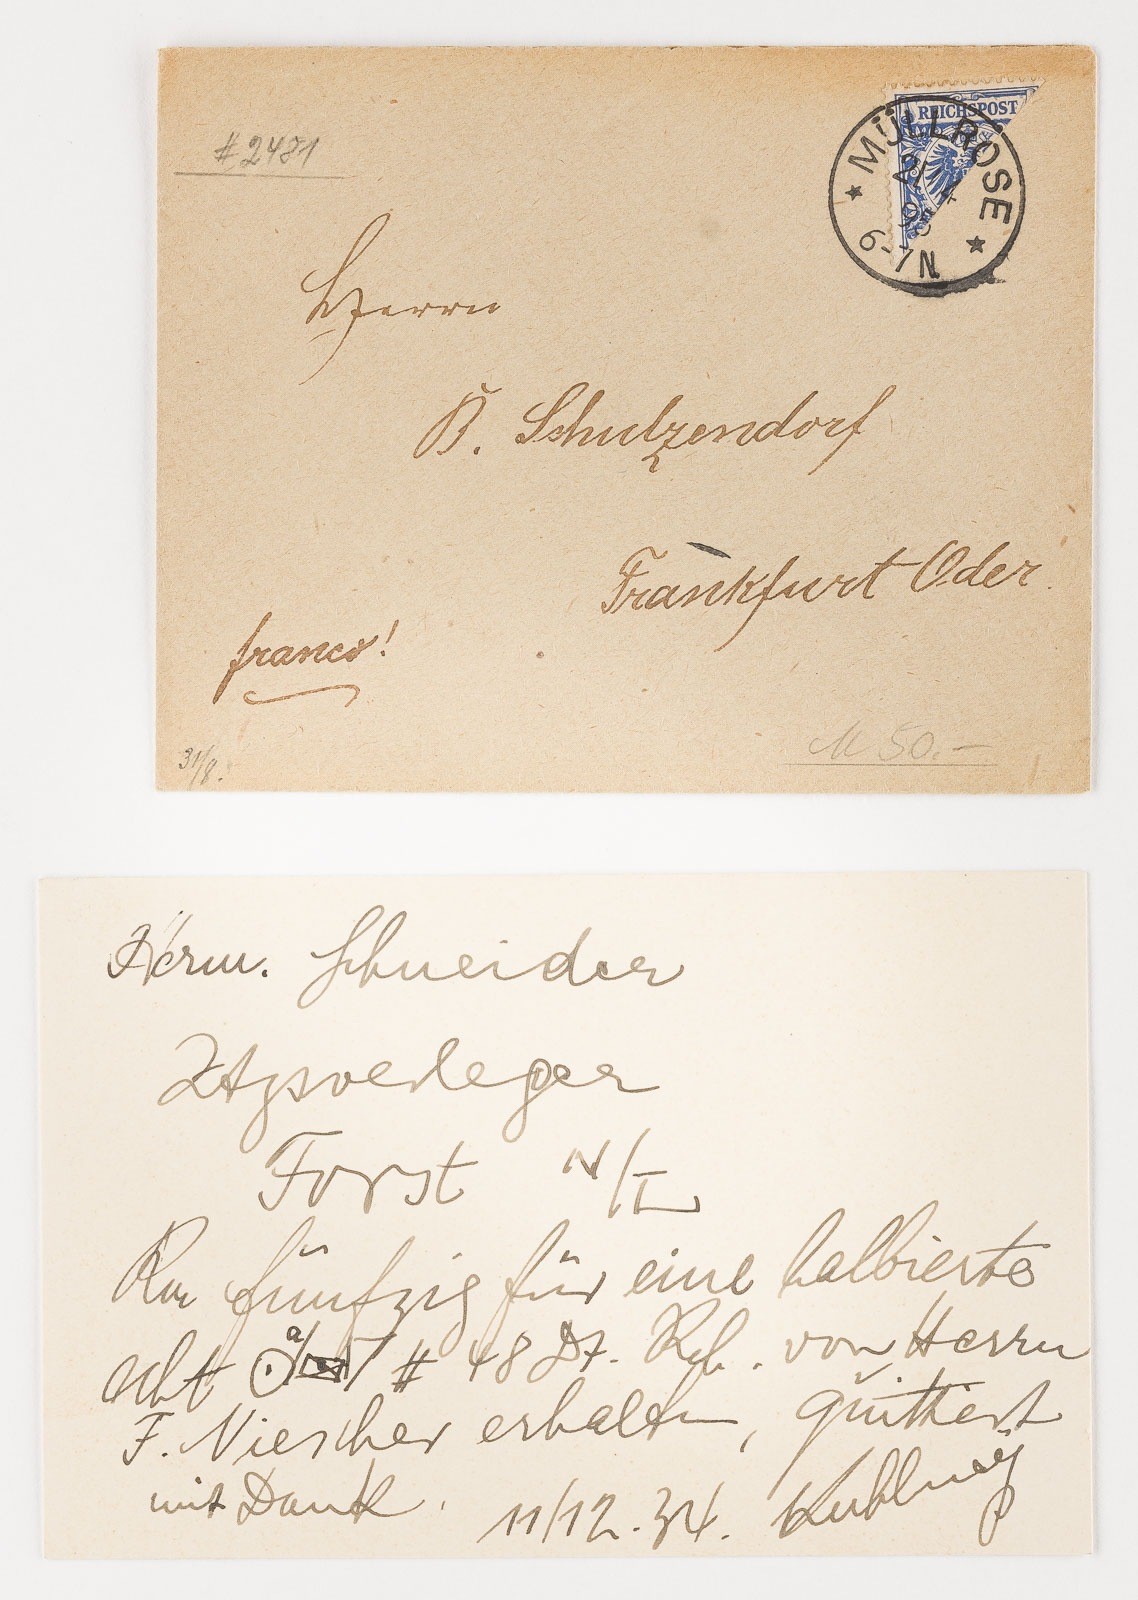 #2481
REICHSPOST
MÜLLROSE
21 4
9
6-7N
Herrn
B. Schulzendorf
Frankfurt Oder.
franco!
31/8.
M 50.-
Herm. Schneider
Ztgsverleger
Forst N/L
Rm fünfzig für eine halbierte
# 48 Dt. Rch. von Herrn
F. Niescher erhalten, quittiert
mit Dank.
11/12.34.